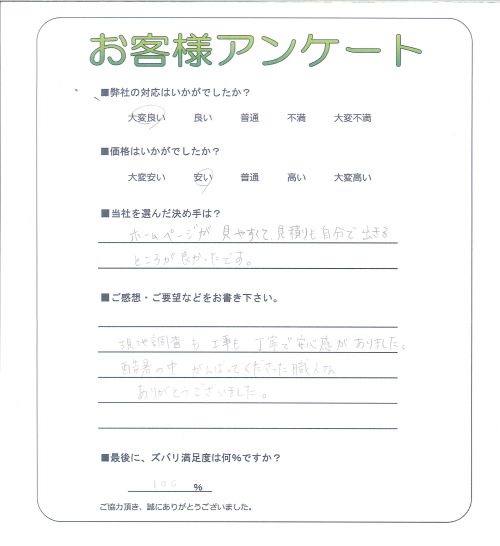 お客様アンケート
■弊社の対応はいかがでしたか？
大変良い 良い 普通 不満 大変不満
■価格はいかがでしたか？
大変安い 安い 普通 高い 大変高い
■当社を選んだ決め手は？
ホームページが 見やすくて、見積りも自分で出きる
ところが良かったです。
■ご感想・ご要望などをお書き下さい。
現地調査も 工事も 丁寧で安心感がありました。
酷暑の中 がんばってくださった職人さん
ありがとうございました。
■最後に、ズバリ満足度は何%ですか？
100 %
ご協力頂き、誠にありがとうございました。